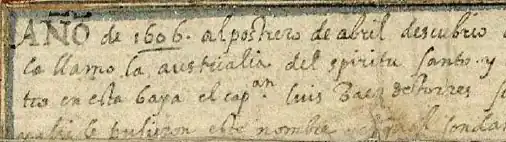 AÑO de 1606. al postrero de abril descubrio
la llamo, la australia del spiritu santo. y
tro en esta baya el capan. luis Baez de torres
le pusieron este nombre